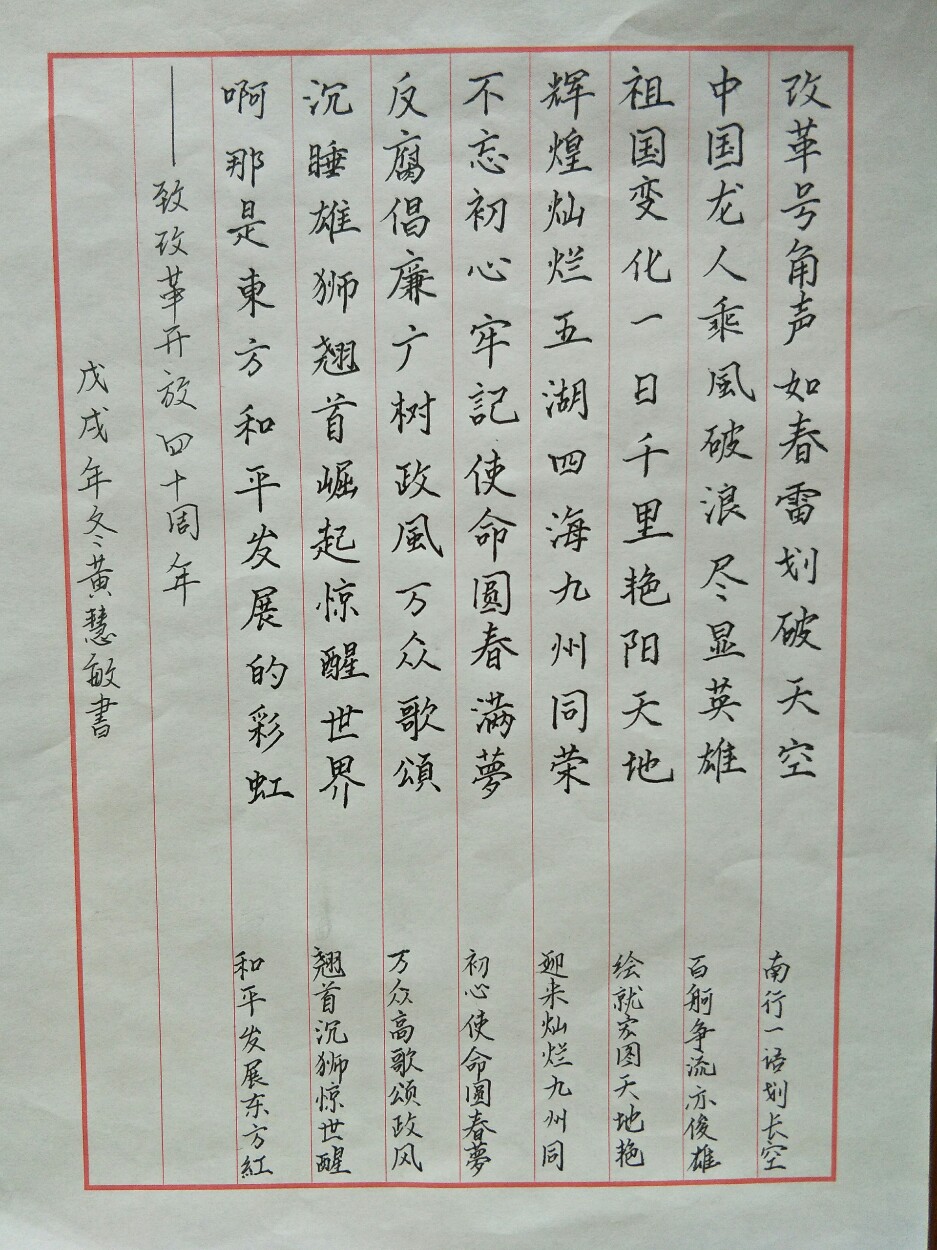 改革号角声如春雷划破天空
中国龙人乘風破浪尽显英雄
祖国变化一日千里艳阳天地
辉煌灿烂五湖四海九州同荣
不忘初心牢記使命圆春满夢
反腐倡廉广树政風万众歌頌
沉睡雄狮翘首崛起惊醒世界
啊那是東方和平发展的彩虹
——致改革开放四十周年
戊戌年冬黄慧敏書
南行一语划长空
百舸争流亦俊雄
绘就宏图天地艳
迎来灿烂九州同
初心使命圆春夢
万众高歌颂政风
翘首沉狮惊世醒
和平发展东方紅